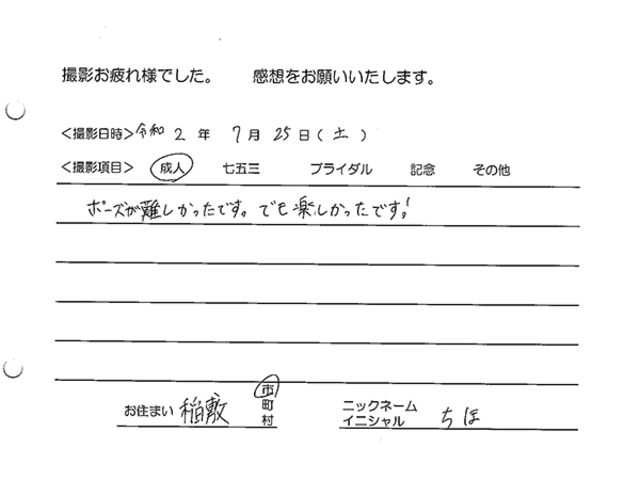 撮影お疲れ様でした。 感想をお願いいたします。
<撮影日時>令和 2 年 7 月 25 日 ( 土 )
<撮影項目> 成人 七五三 ブライダル 記念 その他
ポーズが難しかったです。でも楽しかったです!
お住まい 稲敷 市 町 村 ニックネーム イニシャル ちほ